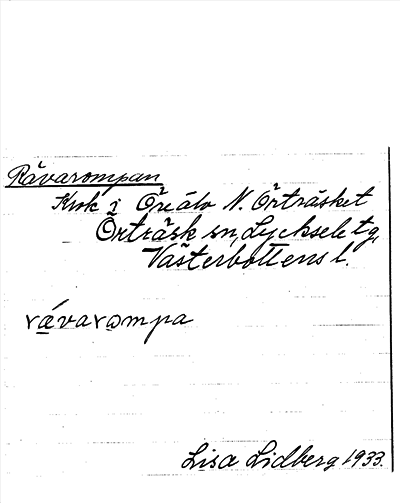 Rävarompan
Krok i Öreälv N. Örträsket
Örträsk sn, Lycksele tg,
Västerbottens l.
rävarompa
Lisa Lidberg 1933.